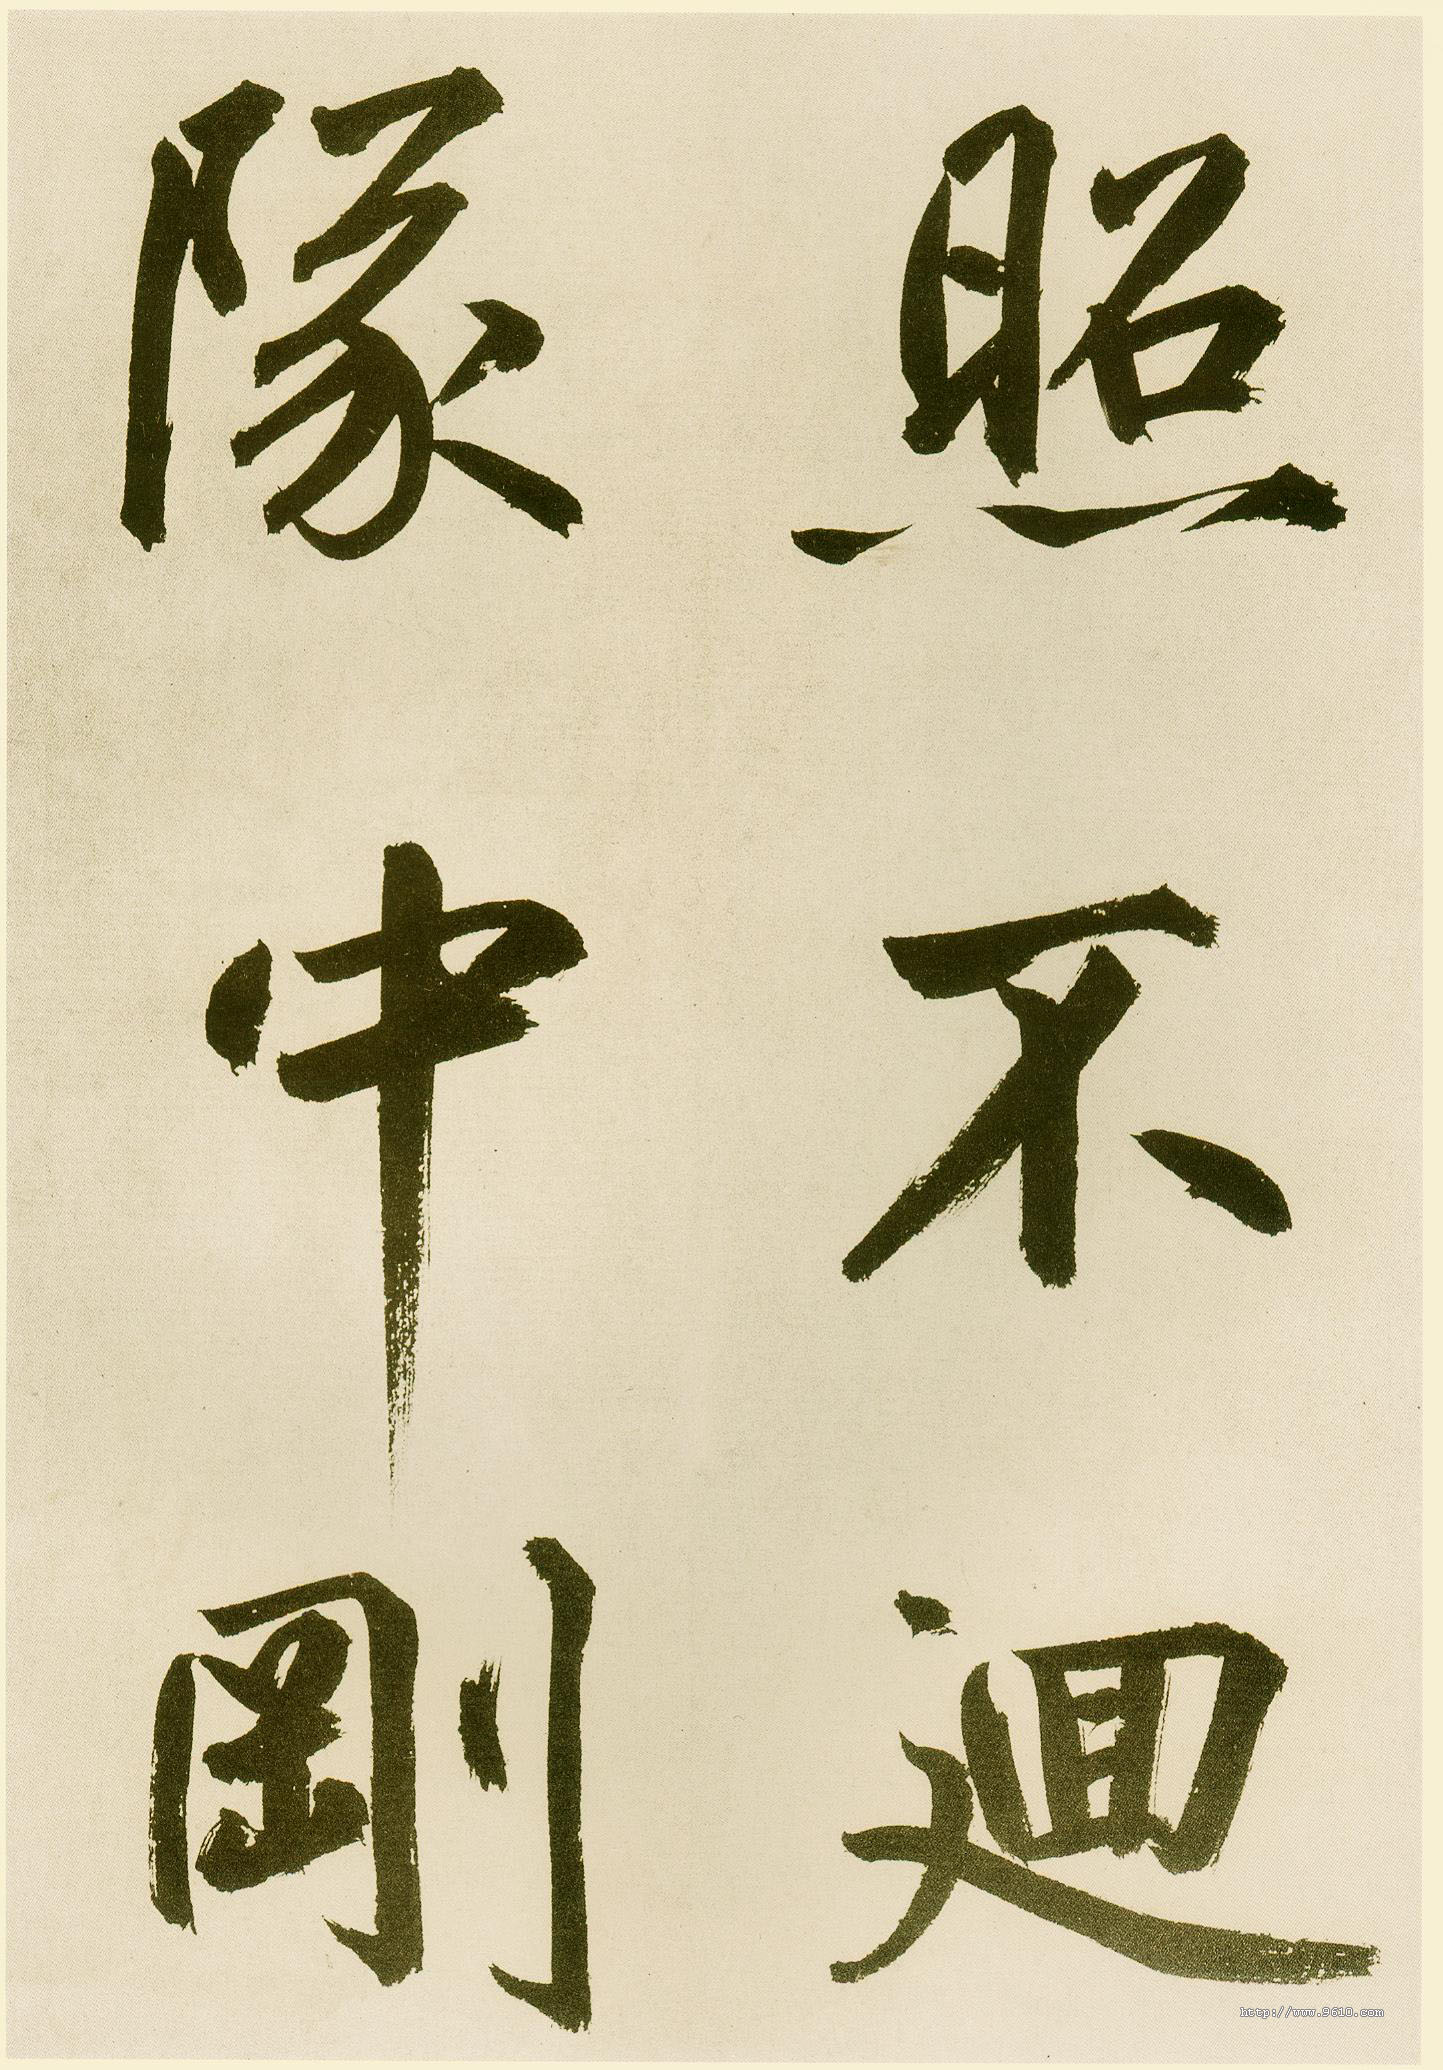 照不迴
隊中剛
http://www.9610.com